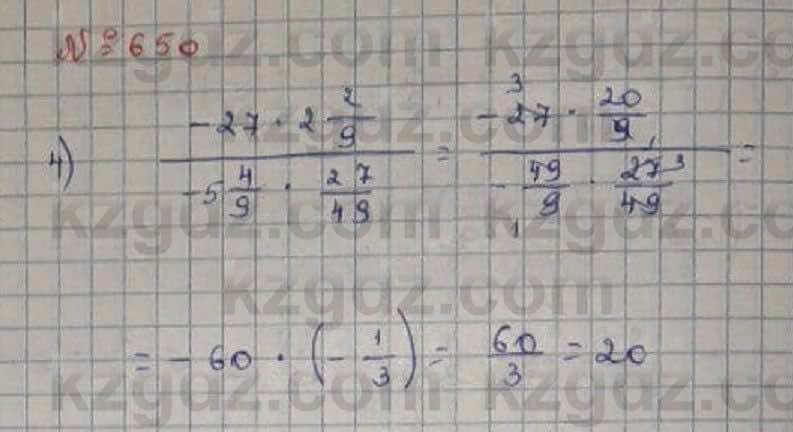 № 650
4) (-27 · 2 2/9) / (-5 4/9 · 27/49) = (-27 3 · 20/9 1) / (-49/9 1 · 27 3/49) =
= -60 · (-1/3) = 60/3 = 20
kzgdz.com
kzgdz.com
kzgdz.com
kzgdz.com
kzgdz.com
kzgdz.com
kzgdz.com